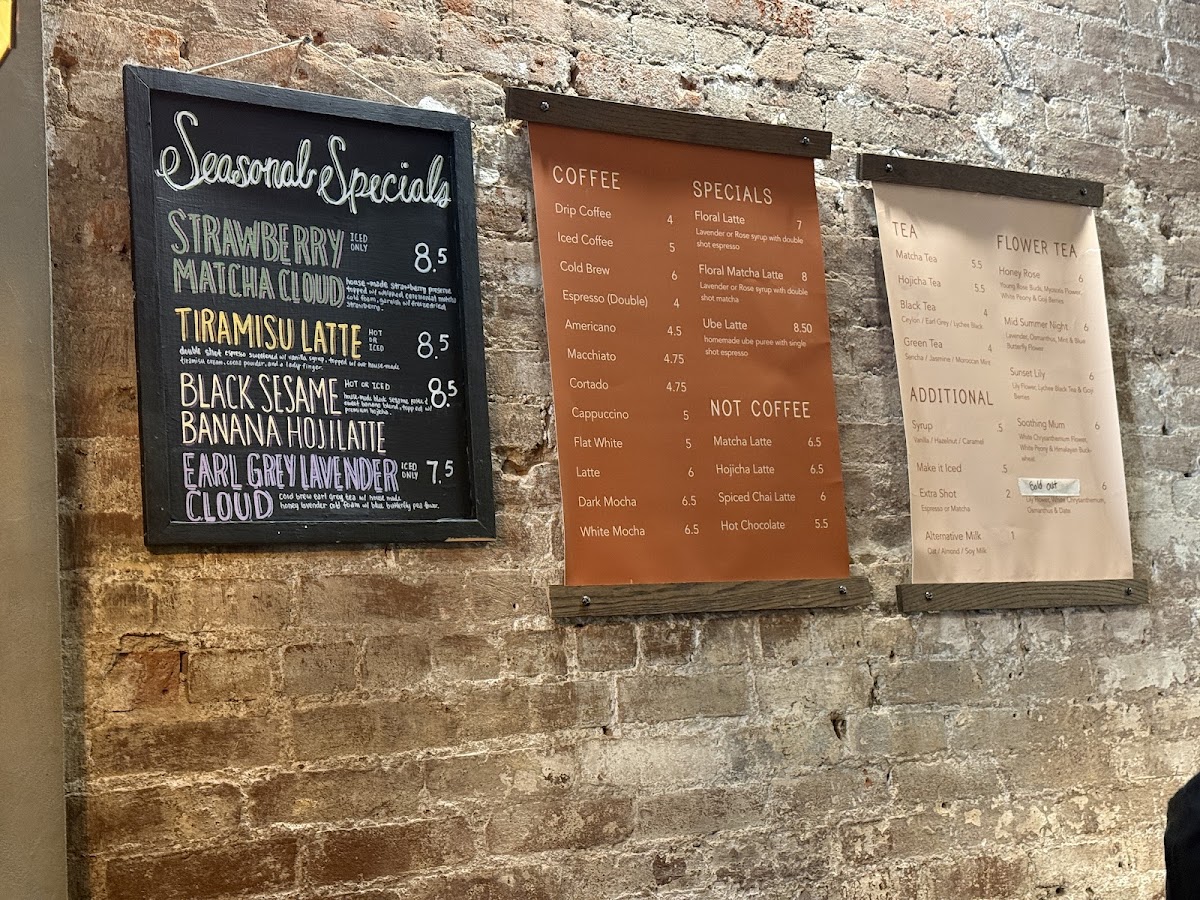 Seasonal Specials
STRAWBERRY ICED ONLY 8.5
MATCHA CLOUD
house-made strawberry preserve
topped w/ whipped ceremonial matcha
cold foam, garnish w/ freeze dried
strawberry.
TIRAMISU LATTE HOT OR ICED 8.5
double shot espresso sweetened w/ vanilla syrup, topped w/ our house-made
tiramisu cream, cocoa powder, and a lady finger.
BLACK SESAME HOT OR ICED 8.5
BANANA HOJILATTE
house-made black sesame paste &
sweet banana blend, topped w/
premium hojicha.
EARL GREY LAVENDER ICED ONLY 7.5
CLOUD
cold brew earl grey tea w/ house made
honey lavender cold foam w/ blue butterfly pea flower.
COFFEE
Drip Coffee 4
Iced Coffee 5
Cold Brew 6
Espresso (Double) 4
Americano 4.5
Macchiato 4.75
Cortado 4.75
Cappuccino 5
Flat White 5
Latte 6
Dark Mocha 6.5
White Mocha 6.5
SPECIALS
Floral Latte 7
Lavender or Rose syrup with double
shot espresso
Floral Matcha Latte 8
Lavender or Rose syrup with double
shot matcha
Ube Latte 8.50
homemade ube puree with single
shot espresso
NOT COFFEE
Matcha Latte 6.5
Hojicha Latte 6.5
Spiced Chai Latte 6
Hot Chocolate 5.5
TEA
Matcha Tea 5.5
Hojicha Tea 5.5
Black Tea 4
Ceylon / Earl Grey / Lychee Black
Green Tea 4
Sencha / Jasmine / Moroccan Mint
ADDITIONAL
Syrup .5
Vanilla / Hazelnut / Caramel
Make it Iced .5
Extra Shot 2
Espresso or Matcha
Alternative Milk 1
Oat / Almond / Soy Milk
FLOWER TEA
Honey Rose 6
Young Rose Buds, Myosotis Flower,
White Peony & Goji Berries
Mid Summer Night 6
Lavender, Osmanthus, Mint & Blue
Butterfly Flower
Sunset Lily 6
Lily Flower, Lychee Black Tea & Goji
Berries
Soothing Mum 6
White Chrysanthemum Flower,
White Peony & Himalayan Buckwheat
Sold out 6
Lily White Chrysanthemum,
Osmanthus & Date